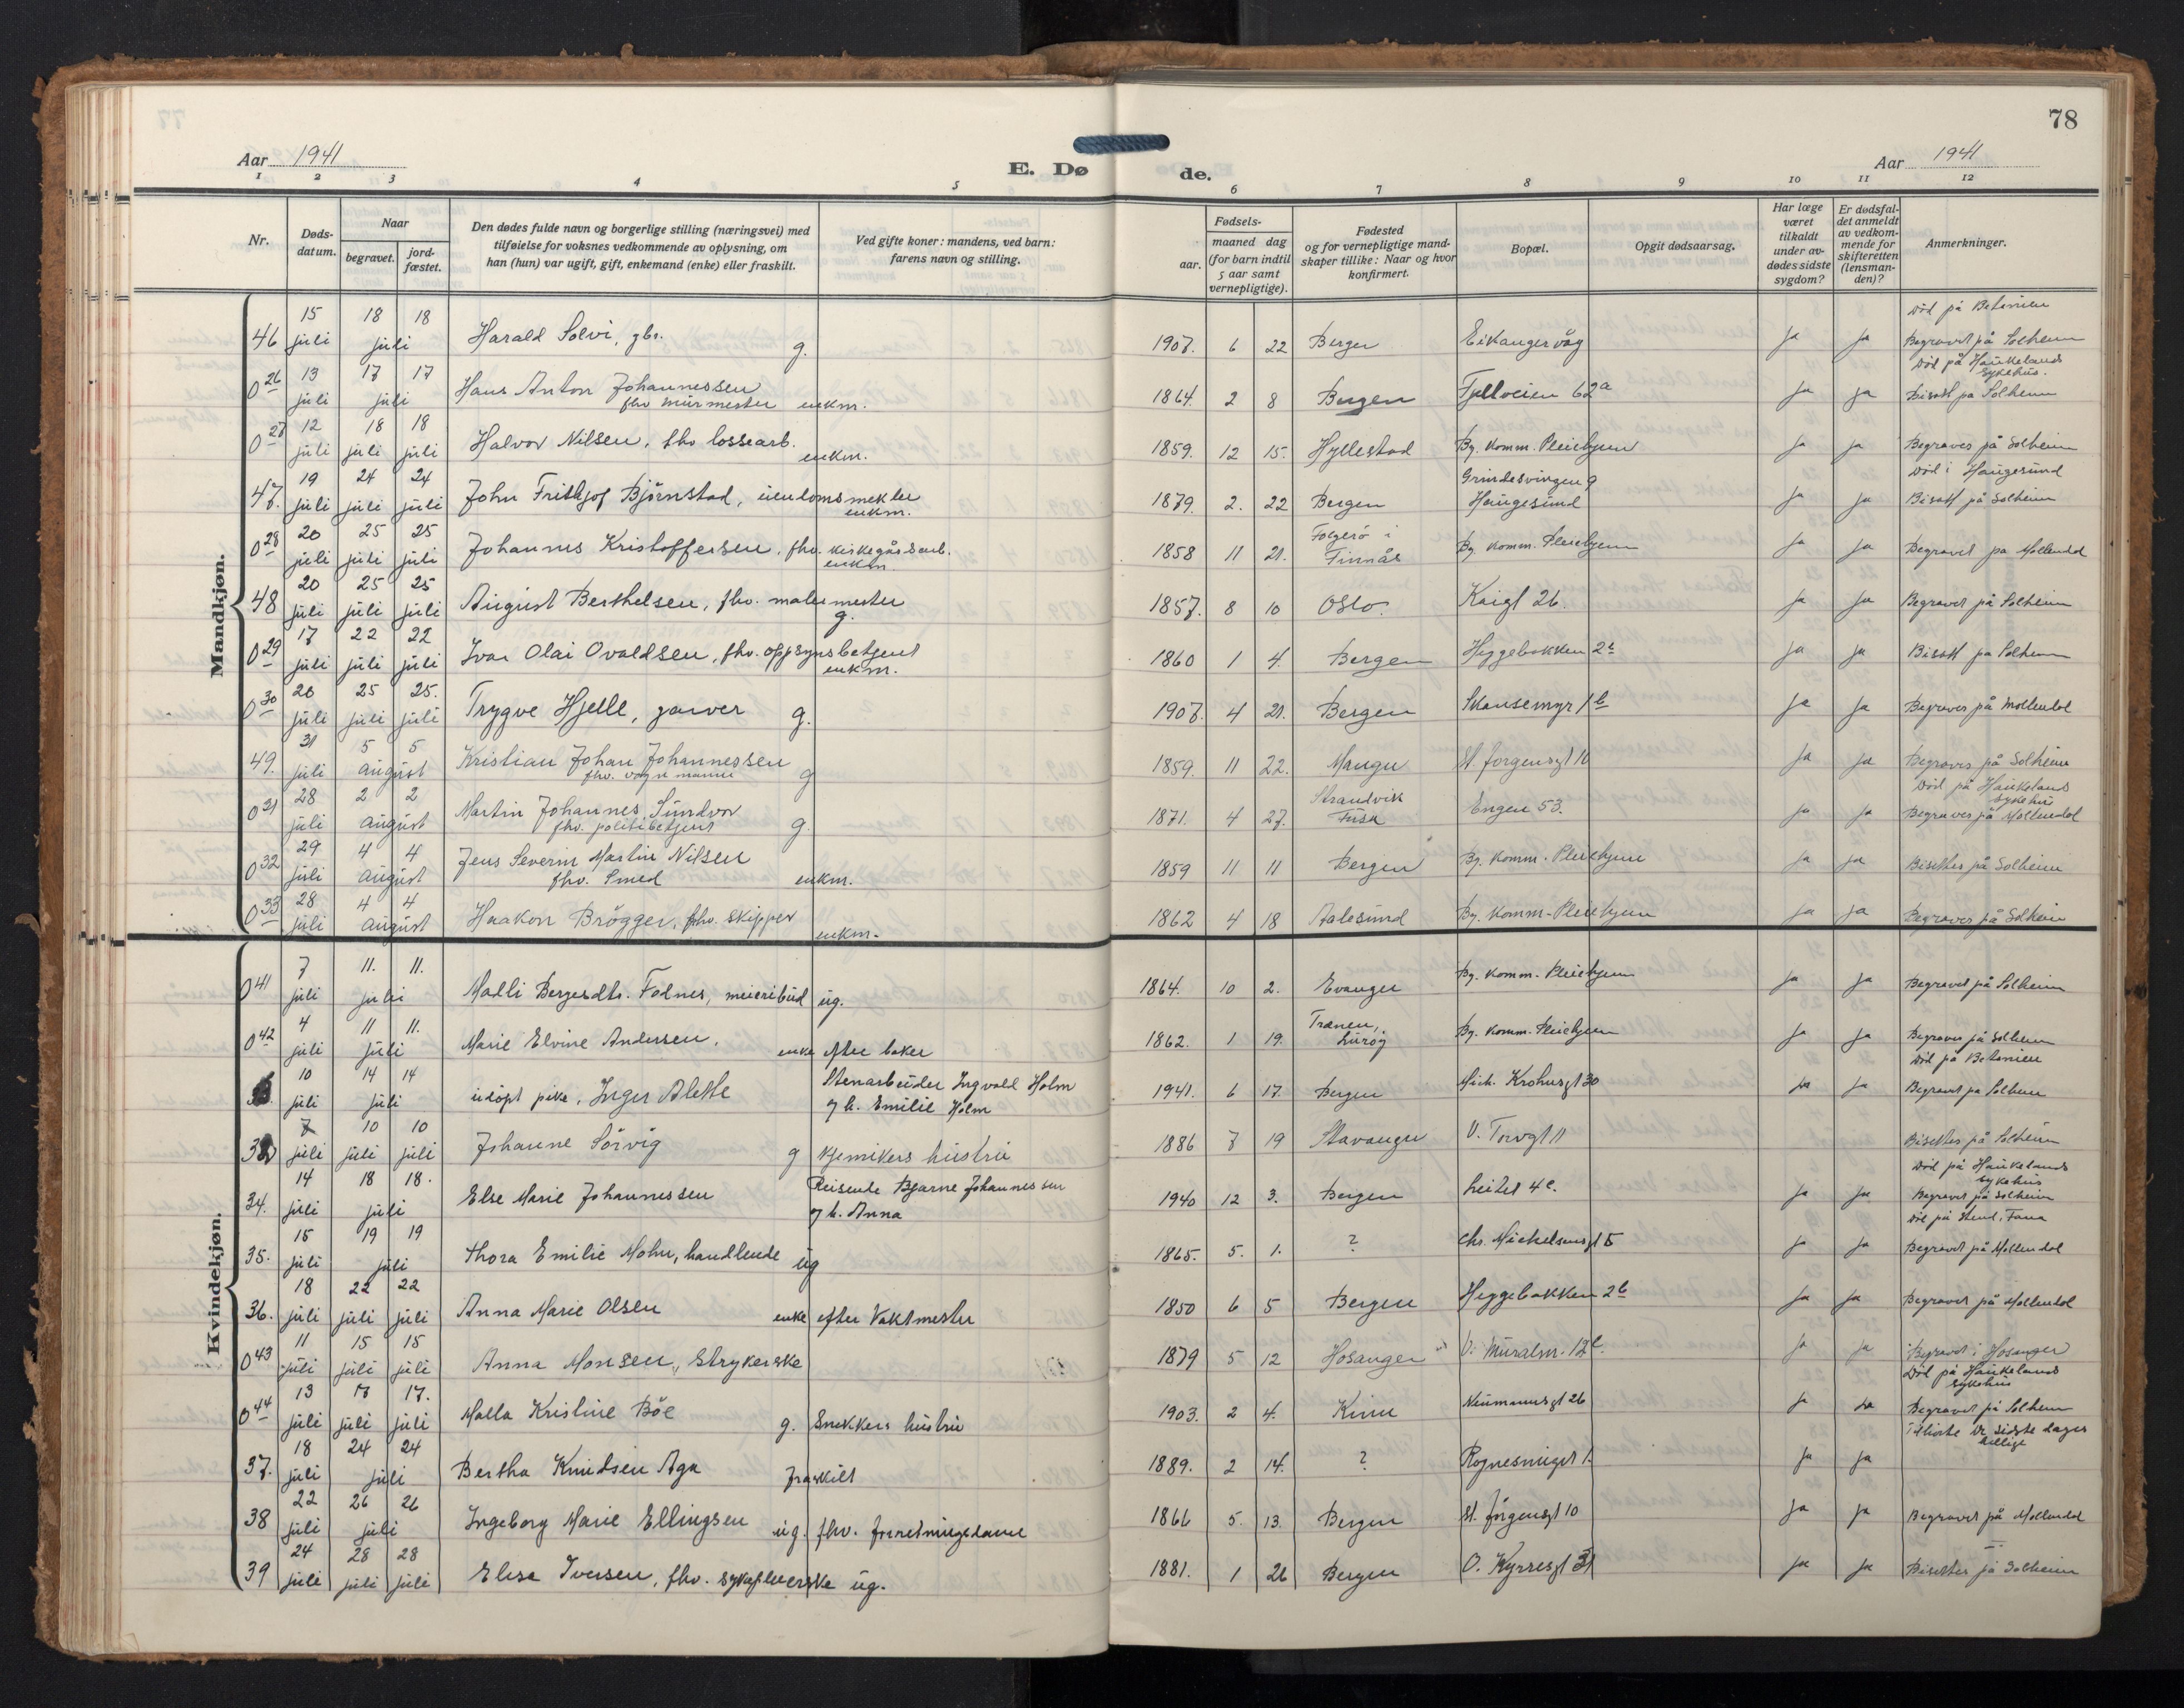 78
Aar 1941
E. Dø
de.
Aar 1941
1 2 3 4 5 6 7 8 9 10 11 12
Nr.
Døds-datum.
Naar
begravet.
jord-fæstet.
Den dødes fulde navn og borgerlige stilling (næringsvei) med
tilføielse for voksnes vedkommende av oplysning, om
han (hun) var ugift, gift, enkemand (enke) eller fraskilt.
Ved gifte koner: mandens, ved barn:
farens navn og stilling.
Fødsels-
aar.
maaned dag
(for barn indtil
5 aar samt
vernepligtige).
Fødested
og for vernepligtige mand-
skaper tillike: Naar og hvor
konfirmert.
Bopæl.
Opgit dødsaarsag.
Har læge
været
tilkaldt
under av-
dødes sidste
sygdom?
Er dødsfal-
det anmeldt
av vedkom-
mende for
skifteretten
(lensman-
den)?
Anmerkninger.
Mandkjøn.
død på Betanien
46 15 juli 18 18 juli Harald Solvi, gbr. g. 1907. 6 22 Bergen Eikangervåg ja ja Begravet på Solheim
Död på Haukelands Sykehus.
0 26 13 juli 17 17 juli Hans Anton Johannessen fhv murmester enkm. 1864. 2 8 Bergen Fjellveien 62a ja ja Bisatt på Solheim
0 27 12 juli 18 juli 18 juli Halvor Nilsen, fhv lossearb. enkm. 1859. 12 15. Hyllestad By. Komm. Pleiehjem ja ja Begraves på Solheim
Död i Haugesund
47. 19 juli 24 juli 24 juli John Frithjof Björnstad, eiendomsmekler enkm. 1879. 2. 22 Bergen Grindesvingen 9 Haugesund ja ja Bisatt på Solheim
0 28 20 juli 25 juli 25 juli Johannes Kristoffersen, fhv. kirkegårdsarb. enkm 1858 11 21. Folgerö i Finnås By Komm. Pleiehjem ja ja Begravet på Möllendal
48 20 juli 25 juli 25 juli August Berthelsen, fhv. malermester g. 1857. 8 10 Oslo. Kaigt 26. ja ja Begravet på Solheim
0 29 17 juli 22 juli 22 juli Ivar Olai Ovaldsen, fhv. oppsynsbetjent enkm. 1860 1 4. Bergen Heggebakken 2 ja ja Bisatt på Solheim
0 30 20 juli 25 juli 25. juli Trygve Hjelle, garver g. 1907. 4 21. Bergen Skansemyr 1 b ja ja Begraves på Möllendal
49. 31 juli 5 5 august Kristian Johan Johannessen fhv. vognmann g 1859. 11 22. Manger St. Jörgensgt 10 ja ja Begraves på Solheim
Död på Haukelands Sykehus
0 31 28 juli 2 2 august Martin Johannes Sundvor fhv. politibetjent g. 1871. 4 27. Strandvik Fusa Engen 53. ja ja Begraves på Möllendal
0 32 29 juli 4 4 august Jens Severin Martin Nilsen fhv. Smed enkm. 1859 11 11 Bergen By. Komm. Pleiehjem ja ja Bisettes på Solheim
0 33 28 juli 4 4 august Haakon Brögger, fhv. skipper enkm. 1862 4 18 Aalesund By. Komm-Pleiehjem ja ja Begraves på Solheim
Kvindekjøn.
0 41 7 juli 11. 11. juli Madli Bergesdtr. Fodnes, meieribud ug. 1864. 10 2. Evanger By. Komm. Pleiehjem ja ja Begravet på Solheim
0 42 4 juli 11 11. juli Marie Elvine Andersen, enke efter baker 1862. 1 19. Trænen, Luröy By. Komm. Pleiehjem ja ja Begraves på Solheim
Död på Betanien
10 juli 14 14 juli udöpt pike, Inger Alette Stenarbeider Ingvald Holm og h. Emilie Holm 1941. 6 17. Bergen Mich. Krohnsgt 30 ja ja Begravet på Solheim
7 juli 10 juli 10 juli Johanne Sörvig g kjemikers hustru 1886 7 19 Stavanger V. Torvgt 11 Bisettes på Solheim
Död på Haukelands Sykehus
34. 14 juli 18 18. juli Else Marie Johannessen Reisende Bjarne Johannessen og h. Anna 1940 12 3. Bergen Leitet 4 c. ja ja Begravet på Solheim
Död på Stend, Fana
35. 15 juli 19 19 juli Thora Emilie Mohn, handlende ug 1865. 5. 1. ? Chr. Michelsensgt 5 ja ja Begravet på Möllendal
36. 18 juli 22 juli 22 juli Anna Marie Olsen enke efter Vaktmester 1850 6 5 Bergen Heggebakken 2 b ja ja Begravet på Möllendal
0 43 11 juli 15 juli 15 juli Anna Monsen, Strykerske 1879 5 12 Hosanger V. Muralm. 12 ja ja Begravet i Hosanger
Död på Haukelands Sykehus
0 44 13 juli 17 juli 17. juli Malla Kristine Böe g. Snekkers hustru 1903. 2 4. Kinn Neumannsgt 26 ja ja Begravet på Solheim
Tilhörte de sidste dages hellige
37. 18 juli 24 24 juli Bertha Knudsen Aga fraskilt 1889. 2 14. ? Rognesmuget 1. ja ja
38 22 juli 26 26 juli Ingeborg Marie Ellingsen ug. fhv. forretningsdame 1866 5. 13. Bergen St. Jörgensgt 10 ja ja Begravet på Möllendal
39 24 juli 28 juli 28 juli Elisa Iversen, fhv. sykepleierske ug. 1881. 1 26 Bergen O. Kyrresgt 31 ja ja Bisettes på Solheim